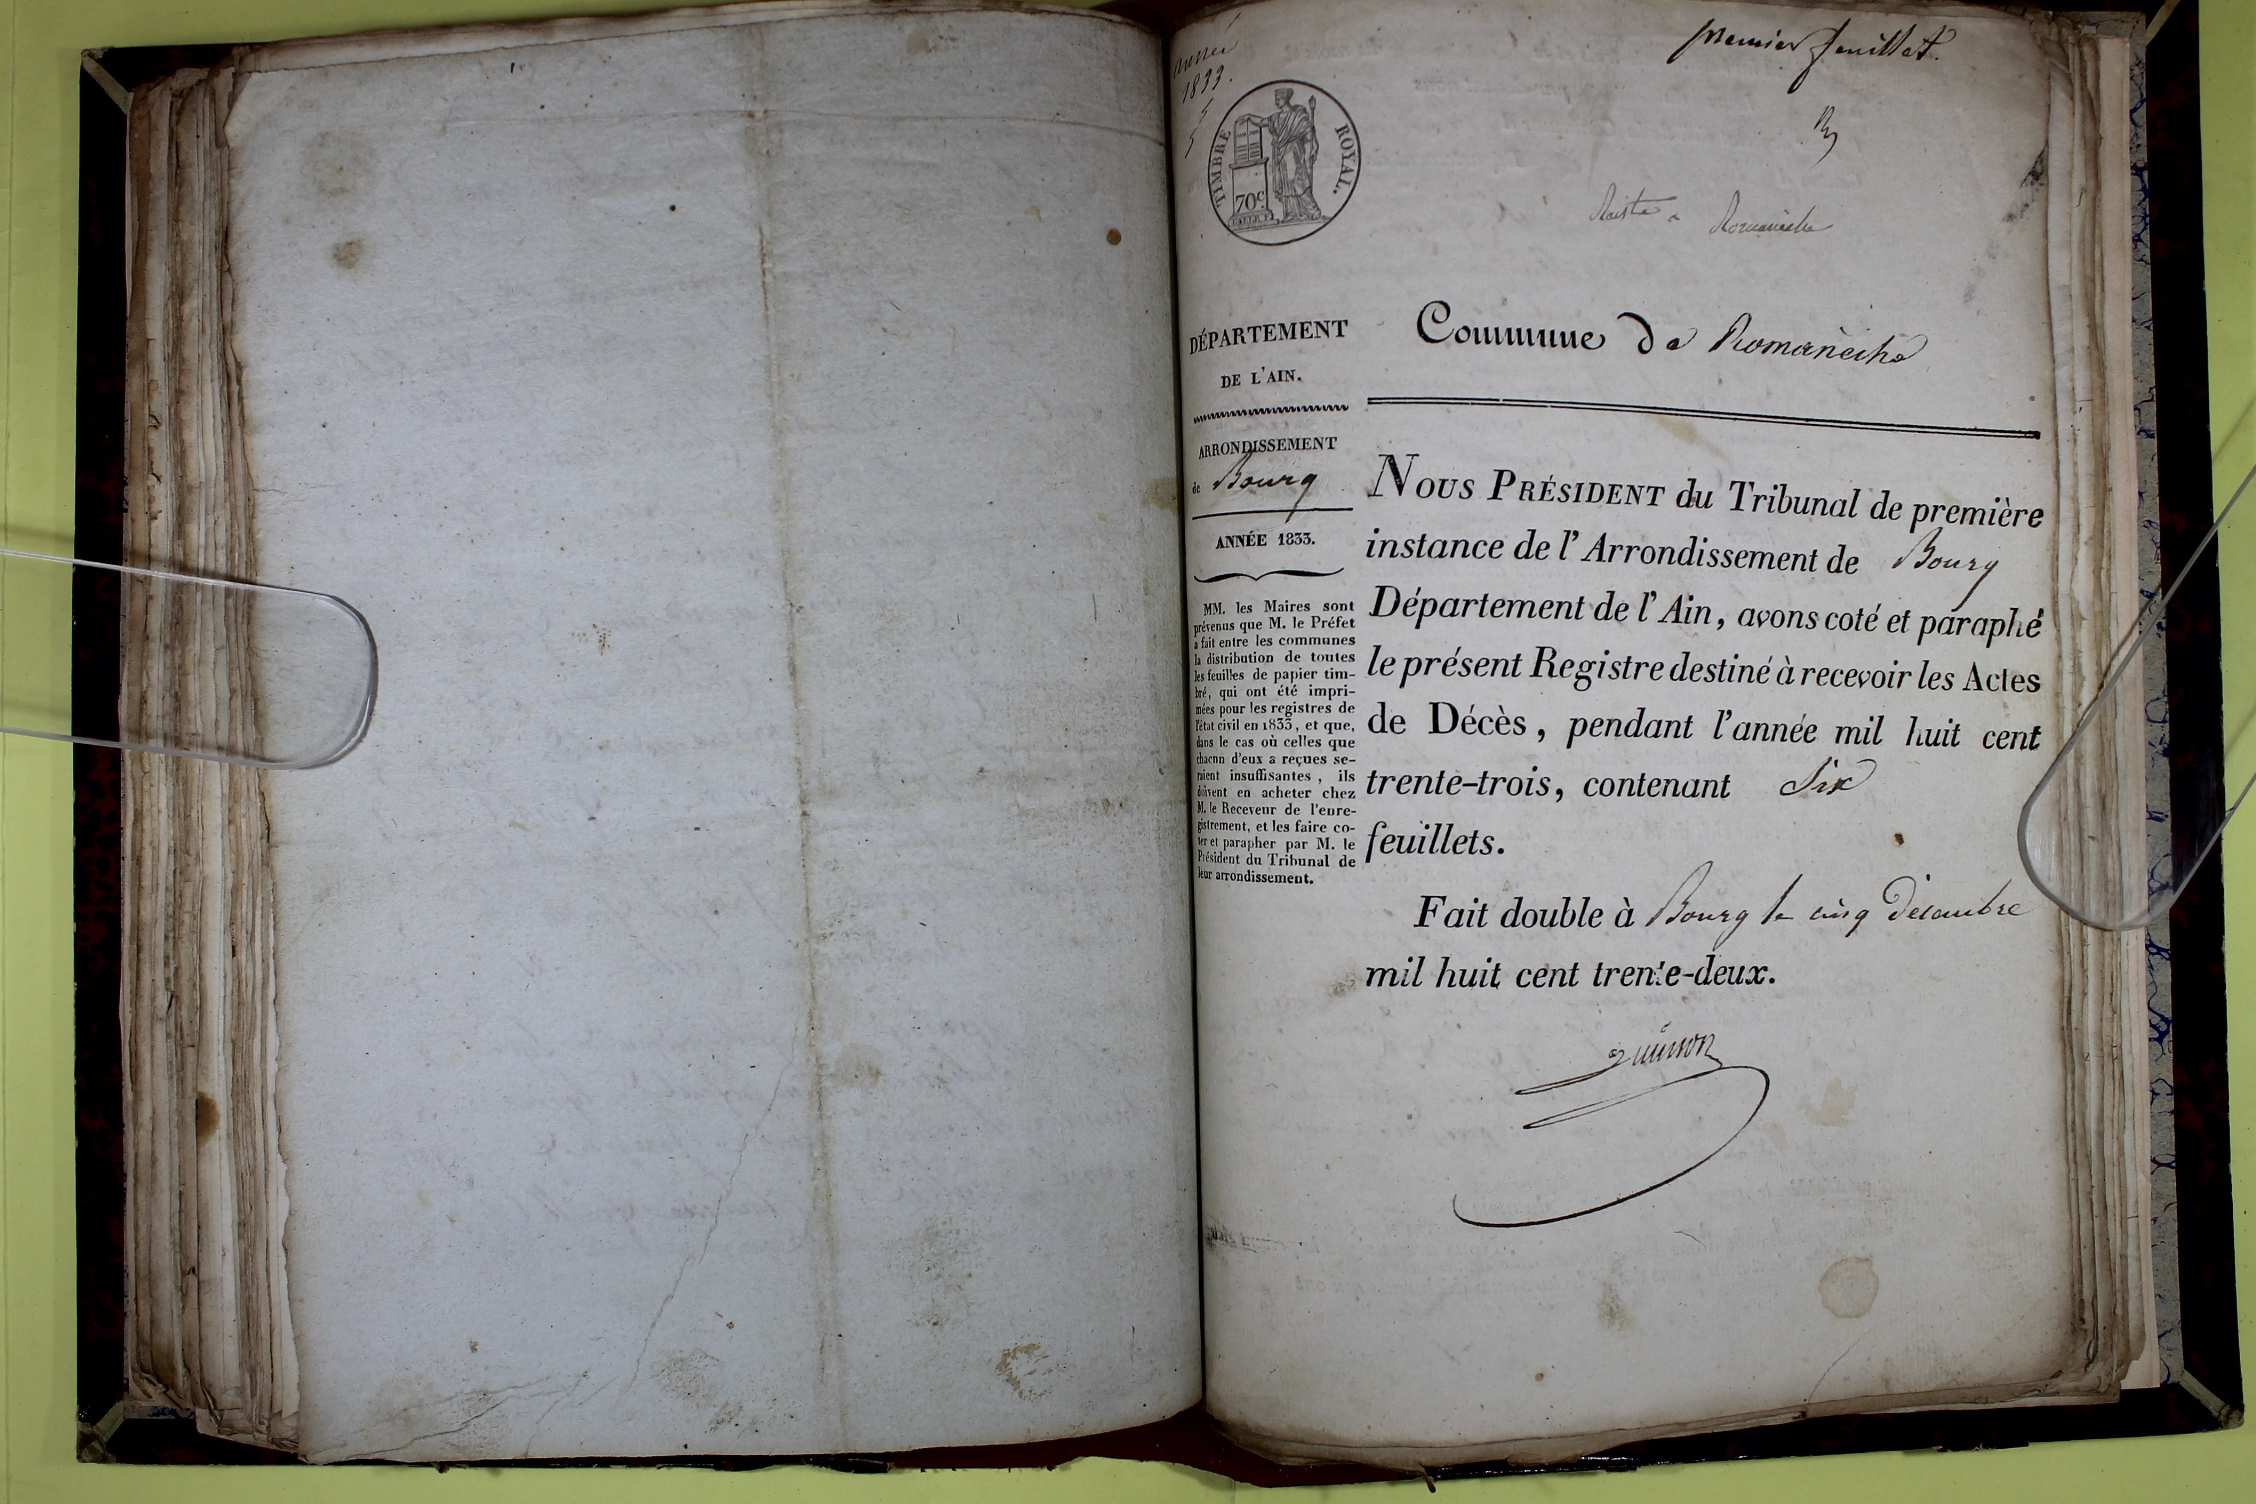 année
1833.
premier feuillet.
TIMBRE ROYAL.
70c
Romanèche
DÉPARTEMENT
DE L'AIN.
ARRONDISSEMENT
de Bourg
ANNÉE 1833.
MM. les Maires sont
prévenus que M. le Préfet
a fait entre les communes
la distribution de toutes
les feuilles de papier tim-
bré, qui ont été impri-
mées pour les registres de
l'état civil en 1833, et que,
dans le cas où celles que
chacun d'eux a reçues se-
raient insuffisantes, ils
doivent en acheter chez
M. le Receveur de l'enre-
gistrement, et les faire co-
ter et parapher par M. le
Président du Tribunal de
leur arrondissement.
Commune de Romanèche
NOUS PRÉSIDENT du Tribunal de première
instance de l'Arrondissement de Bourg
Département de l'Ain, avons coté et paraphé
le présent Registre destiné à recevoir les Actes
de Décès, pendant l'année mil huit cent
trente-trois, contenant Six
feuillets.
Fait double à Bourg le cinq Décembre
mil huit cent trente-deux.